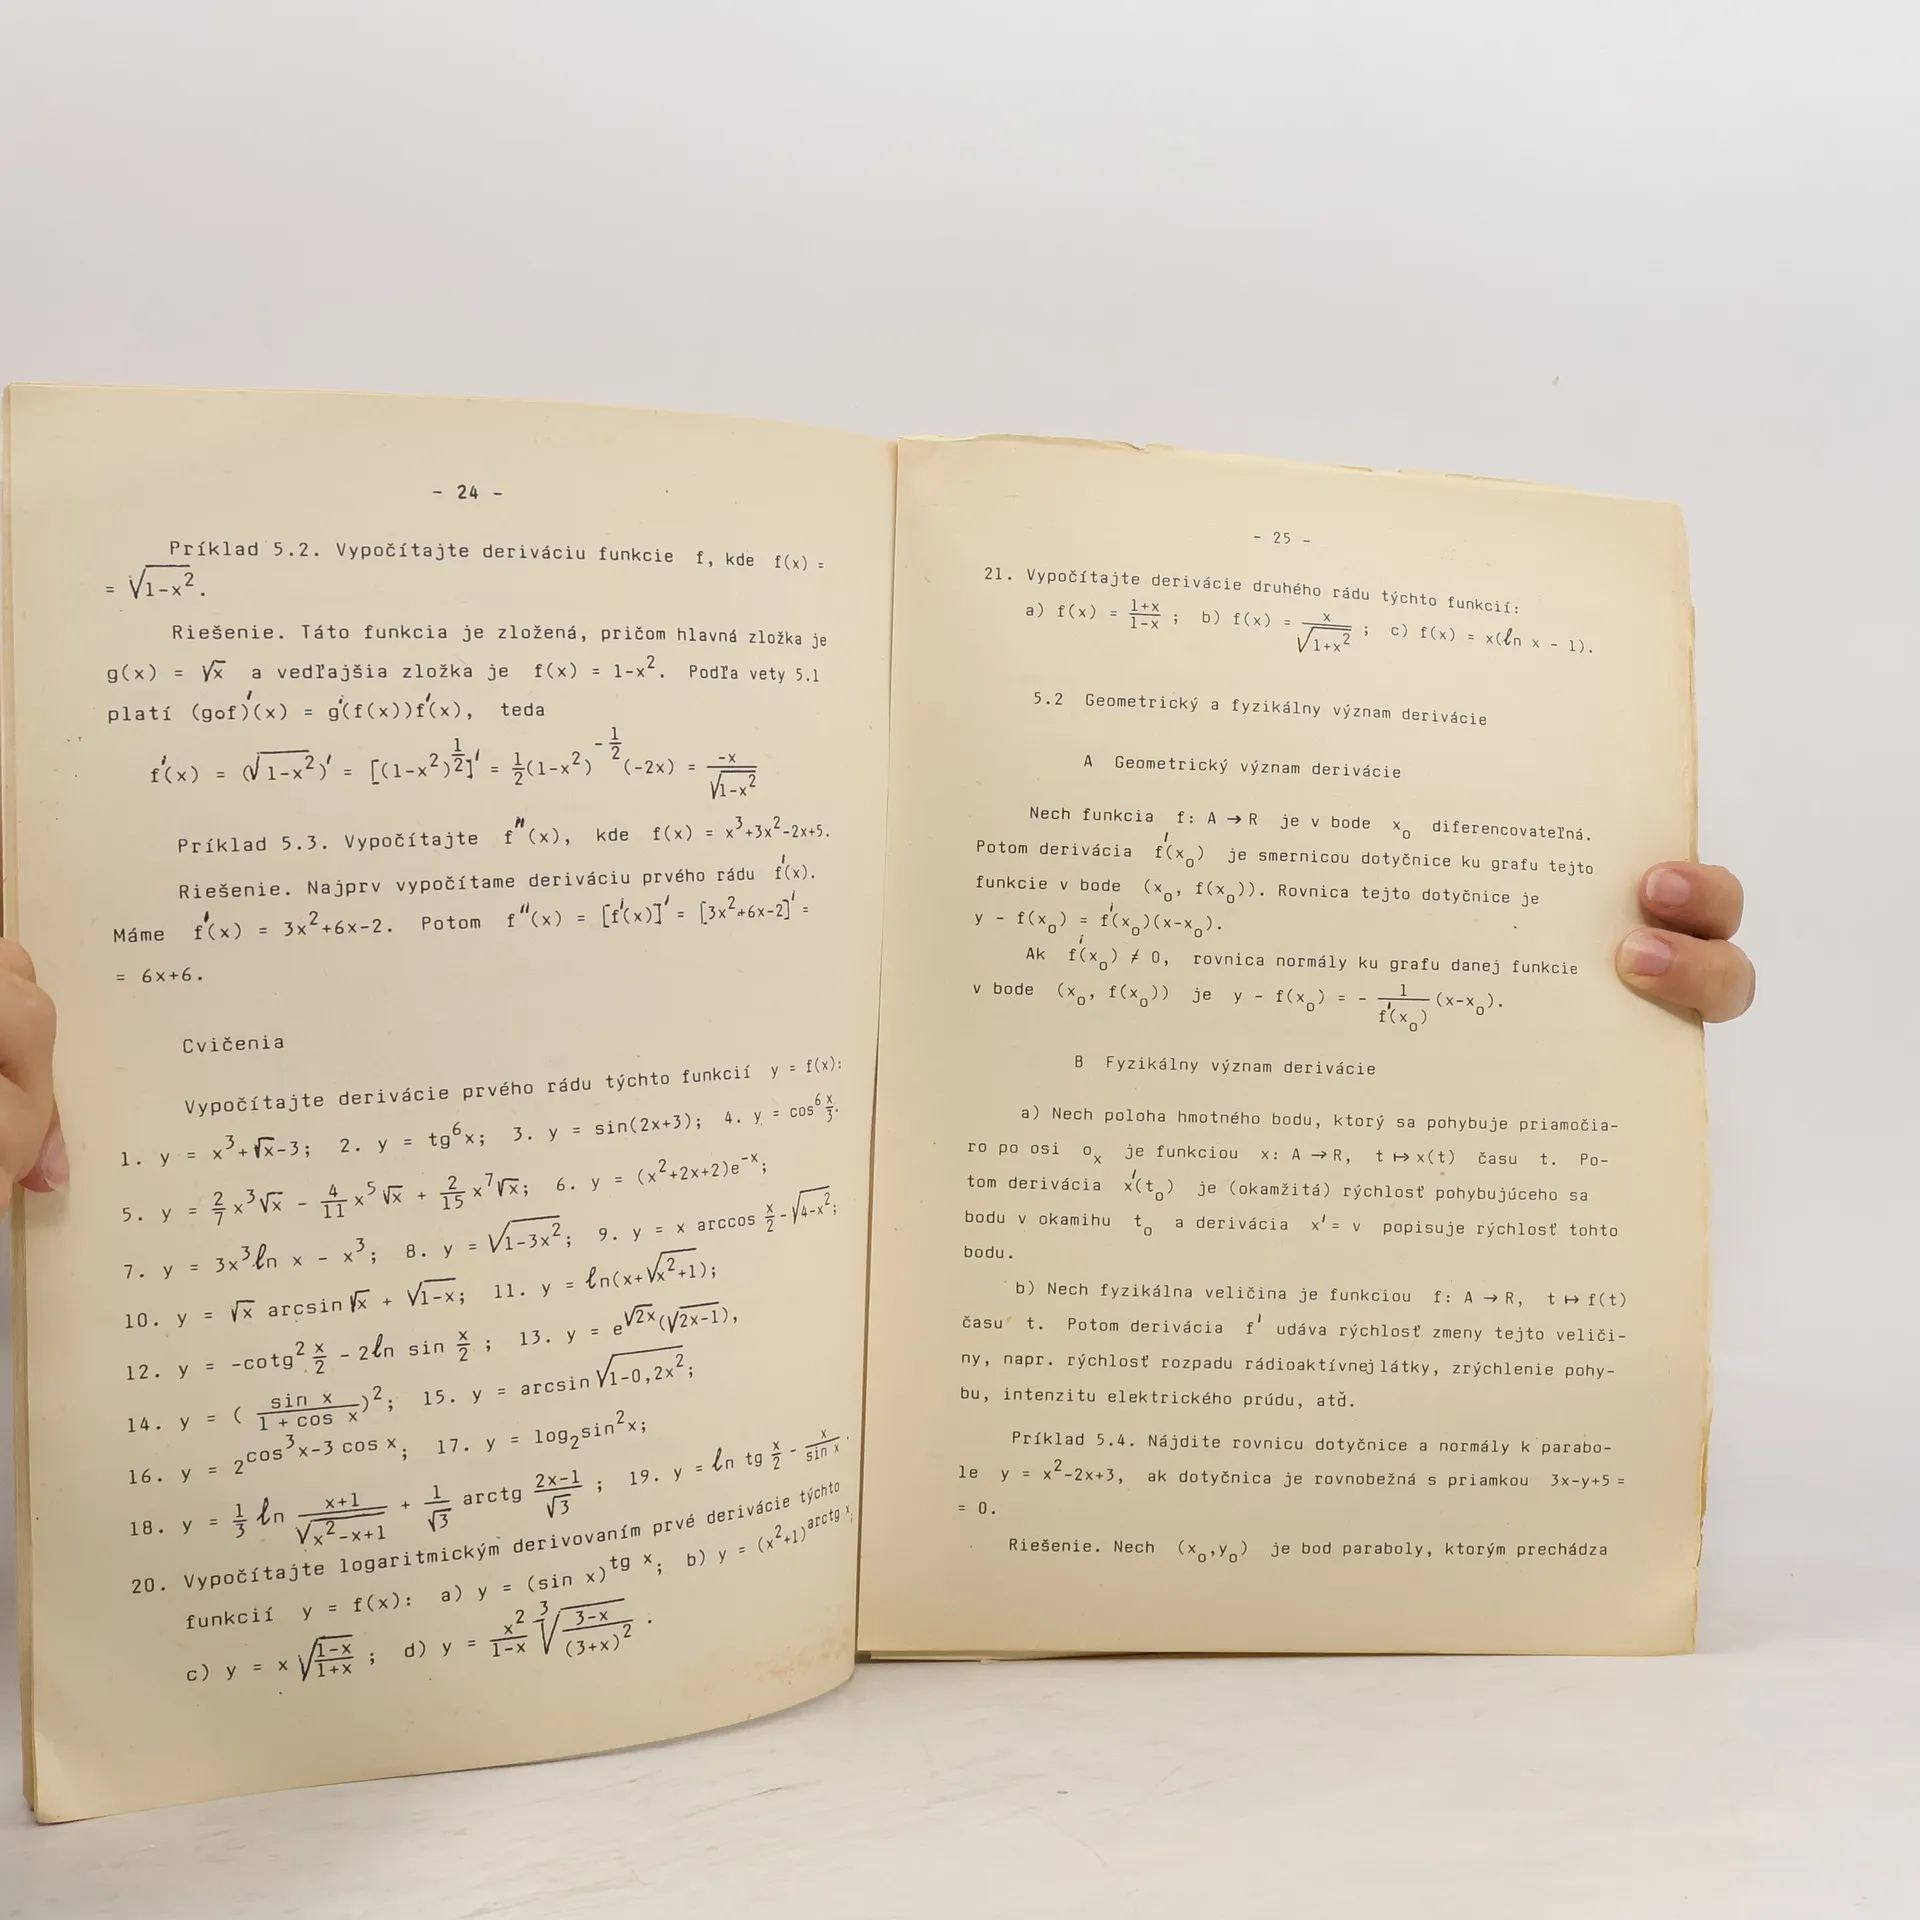 - 24 -
Príklad 5.2. Vypočítajte deriváciu funkcie f, kde f(x) =
= √(1-x²).
Riešenie. Táto funkcia je zložená, pričom hlavná zložka je
g(x) = √x a vedľajšia zložka je f(x) = 1-x². Podľa vety 5.1
platí (gof)′(x) = g′(f(x))f′(x), teda
f′(x) = (√(1-x²))′ = [(1-x²)^(1/2)]′ = 1/2(1-x²)^(-1/2)(-2x) = -x/√(1-x²)
Príklad 5.3. Vypočítajte f″(x), kde f(x) = x³+3x²-2x+5.
Riešenie. Najprv vypočítame deriváciu prvého rádu f′(x).
Máme f′(x) = 3x²+6x-2. Potom f″(x) = [f′(x)]′ = [3x²+6x-2]′ =
= 6x+6.
Cvičenia
Vypočítajte derivácie prvého rádu týchto funkcií y = f(x):
1. y = x³+√x-3; 2. y = tg⁶x; 3. y = sin(2x+3); 4. y = cos⁶ x/3.
5. y = 2/7 x³√x - 4/11 x⁵√x + 2/15 x⁷√x; 6. y = (x²+2x+2)e^(-x);
7. y = 3x³ln x - x³; 8. y = √(1-3x²); 9. y = x arccos x/2 - √(4-x²);
10. y = √x arcsin √x + √(1-x); 11. y = ln(x+√(x²+1);
12. y = -cotg² x/2 - 2ln sin x/2 ; 13. y = e^(√2x)(√(2x-1)),
14. y = ( sin x/(1 + cos x) )²; 15. y = arcsin √(1-0,2x²);
16. y = 2^(cos³x-3 cos x); 17. y = log₂sin²x;
18. y = 1/3 ln (x+1)/√(x²-x+1) + 1/√3 arctg (2x-1)/√3 ; 19. y = ln tg x/2 - x/sin x.
20. Vypočítajte logaritmickým derivovaním prvé derivácie týchto
funkcií y = f(x): a) y = (sin x)^(tg x); b) y = (x²+1)^(arctg x);
c) y = x √((1-x)/(1+x)) ; d) y = x²/(1-x) ∛((3-x)/(3+x)²) .
- 25 -
21. Vypočítajte derivácie druhého rádu týchto funkcií:
a) f(x) = (1+x)/(1-x) ; b) f(x) = x/√(1+x²) ; c) f(x) = x(ln x - 1).
5.2 Geometrický a fyzikálny význam derivácie
A Geometrický význam derivácie
Nech funkcia f: A → R je v bode x₀ diferencovateľná.
Potom derivácia f′(x₀) je smernicou dotyčnice ku grafu tejto
funkcie v bode (x₀, f(x₀)). Rovnica tejto dotyčnice je
y - f(x₀) = f′(x₀)(x-x₀).
Ak f′(x₀) ≠ 0, rovnica normály ku grafu danej funkcie
v bode (x₀, f(x₀)) je y - f(x₀) = - 1/f′(x₀) (x-x₀).
B Fyzikálny význam derivácie
a) Nech poloha hmotného bodu, ktorý sa pohybuje priamočia-
ro po osi oₓ je funkciou x: A → R, t ↦ x(t) času t. Po-
tom derivácia x′(t₀) je (okamžitá) rýchlosť pohybujúceho sa
bodu v okamihu t₀ a derivácia x′ = v popisuje rýchlosť tohto
bodu.
b) Nech fyzikálna veličina je funkciou f: A → R, t ↦ f(t)
času t. Potom derivácia f′ udáva rýchlosť zmeny tejto veliči-
ny, napr. rýchlosť rozpadu rádioaktívnej látky, zrýchlenie pohy-
bu, intenzitu elektrického prúdu, atď.
Príklad 5.4. Nájdite rovnicu dotyčnice a normály k parabo-
le y = x²-2x+3, ak dotyčnica je rovnobežná s priamkou 3x-y+5 =
= 0.
Riešenie. Nech (x₀,y₀) je bod paraboly, ktorým prechádza